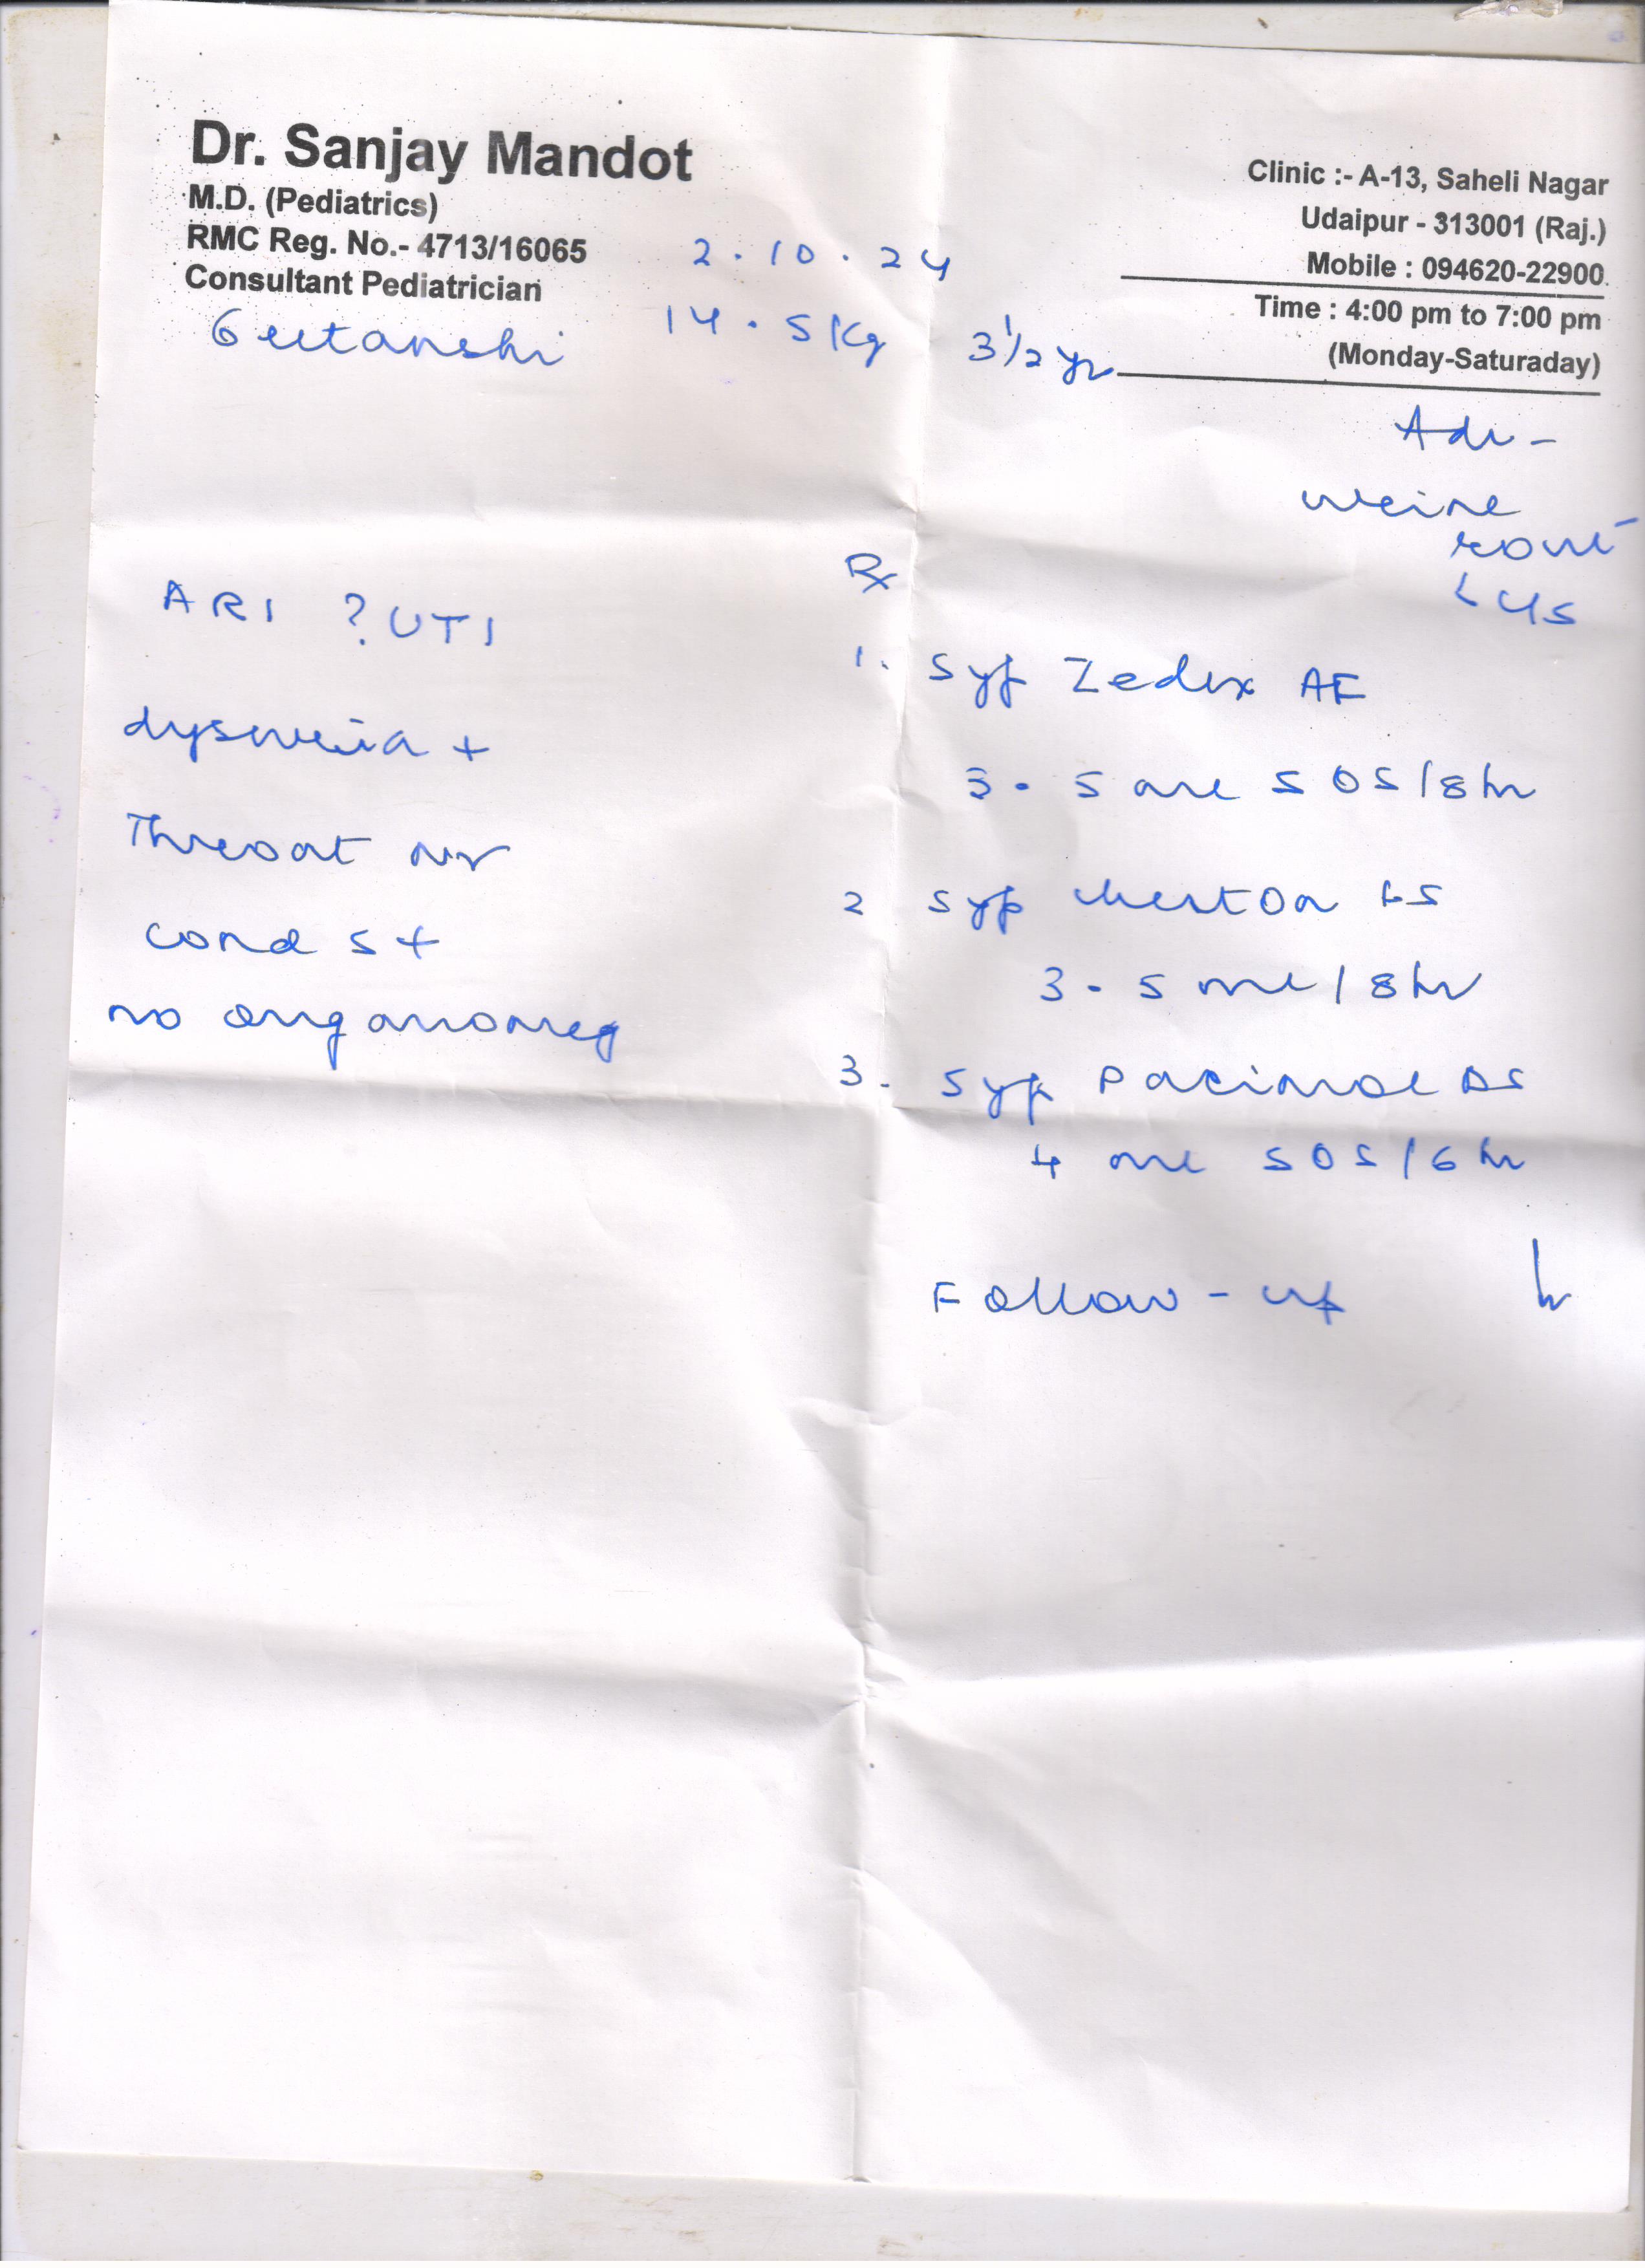 Dr. Sanjay Mandot
M.D. (Pediatrics)
RMC Reg. No.- 4713/16065
Consultant Pediatrician
Clinic :- A-13, Saheli Nagar
Udaipur - 313001 (Raj.)
Mobile : 094620-22900
Time : 4:00 pm to 7:00 pm
(Monday-Saturaday)
2.10.24
Geetanshi 14.5 Kg 3 1/2 yr
Adv -
urine
rout
ARI ? UTI
dysuria +
Throat nr
cond s +
no organomeg
Rx
1. Syp Zedex AF
3-5 ml SOS/8hr
2 Syp Cheston LS
3-5 ml/8hr
3. Syp Pacimol DS
4 ml SOS/6hr
Follow-up